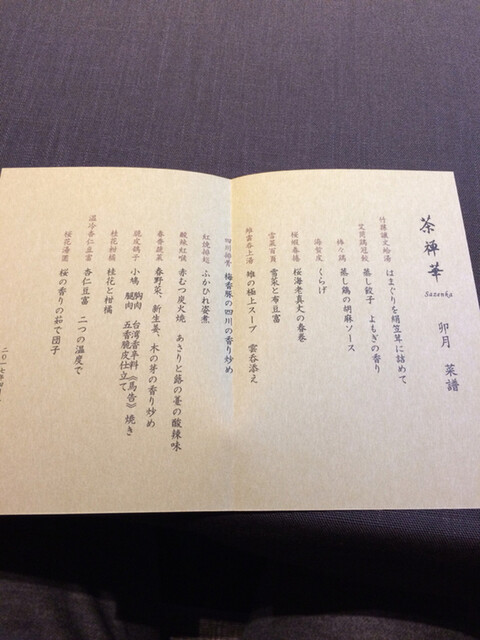 茶禅華
Sazenka
卯月 菜譜
はまぐりを絹笠茸に詰めて
蒸し餃子 よもぎの香り
蒸し鶏の胡麻ソース
海蜇皮 くらげ
桜蝦春捲 桜海老真丈の春巻
雪菜百頁 雪菜と布豆腐
雉雲呑上湯 雉の極上スープ 雲呑添え
梅香豚の四川の香り炒め
紅焼排翅 ふかひれ姿煮
酸辣紅喉 赤むつ炭火焼 あさりと蕗の薹の酸辣味
春香蔬菜 春野菜、新生姜、木の芽の香り炒め
脆皮鴿子 小鳩 胸肉 台湾香辛料《馬告》焼き
腿肉 五香脆皮仕立て
桂花柑橘 桂花と柑橘
温冷杏仁豆富 杏仁豆富 二つの温度で
桜花湯圓 桜の香りの茹で団子